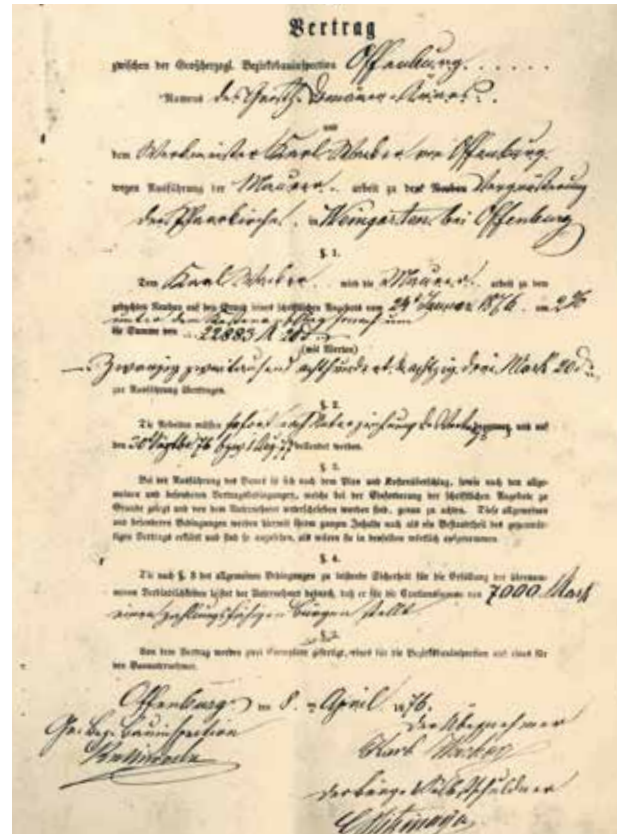 Vertrag
zwischen der Großherzogl. Bezirksbauinspection Offenburg
Namens des Großh. Domänen-Ärars
und
dem Werkmeister Karl Weber von Offenburg
wegen Ausführung der Maurer arbeit zu der Vergrößerung
der Pfarrkirche in Weingarten bei Offenburg
§. 1.
Dem Karl Weber wird die Maurer arbeit zu dem
gedachten Neubau auf den Grund eines schriftlichen Angebots vom 24 Januar 1876 um 2%
unter dem
die Summe von 22883 M 20 d
(mit Worten)
Zwanzig zwei tausend achthundert achtzig drei Mark 20 d
zur Ausführung übertragen.
§. 2.
Die Arbeiten müssen sofort nach und auf
den 76 1 77 vollendet werden.
§. 3.
Bei der Ausführung des Baues ist sich nach dem Plan und Kostenüberschlag, sowie nach den allge-
meinen und besonderen Vertragsbedingungen, welche bei der Einforderung der schriftlichen Angebote zu
Grunde gelegt und von dem Unternehmer unterschrieben worden sind, genau zu achten. Diese allgemeinen
und besonderen Bedingungen werden hiermit ihrem ganzen Inhalte nach als ein Bestandtheil des gegenwär-
tigen Vertrags erklärt und sind so anzusehen, als wären sie in demselben wörtlich aufgenommen.
§. 4.
Die nach §. 8 der allgemeinen Bedingungen zu leistende Sicherheit für die Erfüllung der übernom-
menen Verbindlichkeiten leistet der Unternehmer dadurch, daß er für die Cautionssumme von 7000 Mark
einen zahlungsfähigen Bürgen stellt
§. 5.
Von dem Vertrag werden zwei Exemplare gefertigt, eines für die Bezirksbauinspection und eines für
den Bauunternehmer.
Offenburg den 8. April 1876.
Gr. Bez. Bauinspection
Der Übernehmer
Karl Weber
Der Bürge & Selbstschuldner